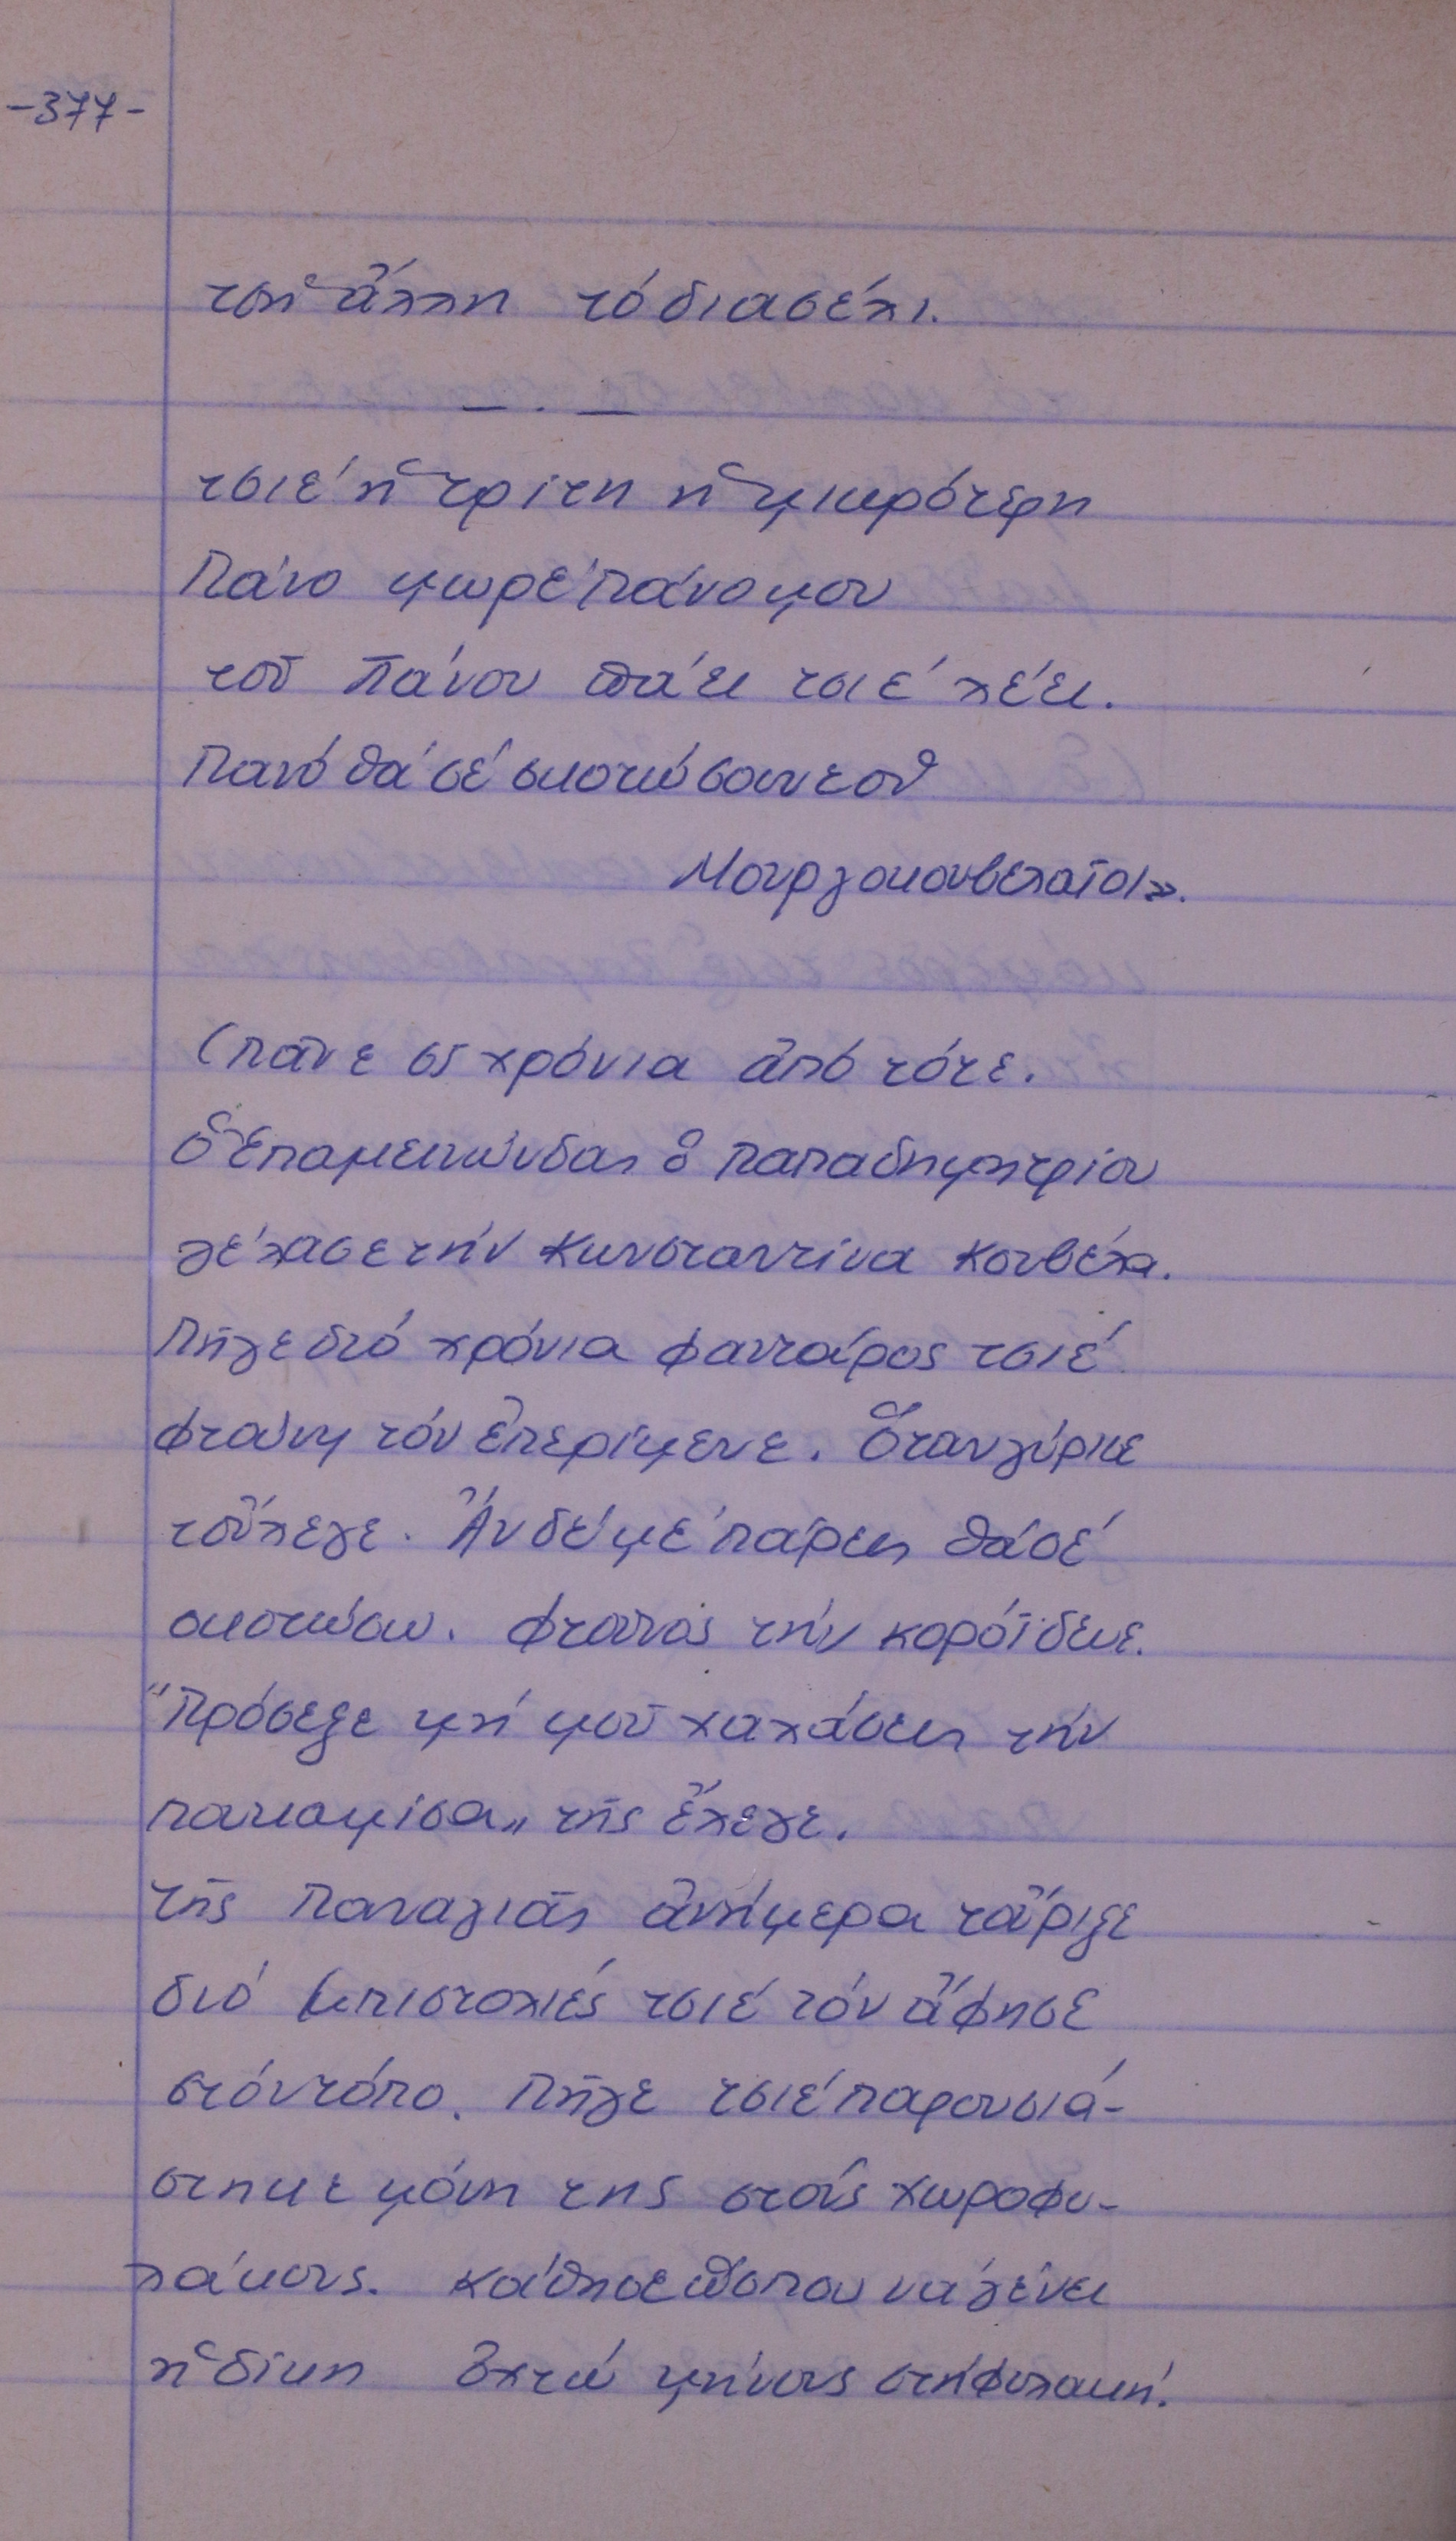 -377-
τσή ἄλλη τό διασέλι.
— . —
τσιέ ἡ τρίτη ἡ μικρότερη
Πάνο μωρέ Πάνο μου
τοῦ Πάνου πάει τσιέ λέει.
Πανό θά σέ σκοτώσουνε οἱ
Μουργοκουβελαῖοι».
(πᾶνε 65 χρόνια ἀπό τότε.
Ὁ Ἐπαμεινώνδας ὁ Παπαδημητρίου
γέλασε τήν Κωνσταντίνα Κουβέλα.
Πῆγε διό χρόνια φανταῖρος τσιέ
φτούνη τόν ἐπερίμενε. Ὅταν γύρισε
τοὔλεγε. Ἄν δέ μέ πάρεις θά σέ
σκοτώσω. Φτοῦνος τήν κορόϊδευε.
"Πρόσεξε μή μοῦ χαλάσεις τήν
πουκαμίσα„ τῆς ἔλεγε.
Τῆς Παναγιᾶς ἀνήμερα τοὔριξε
διό μπιστολιές τσιέ τόν ἄφησε
στόν τόπο. Πῆγε τσιέ παρουσιά-
στηκε μόνη της στούς χωροφυ-
λάκους. Κάθησε ὥσπου νά γένει
ἡ δίκη ὀχτώ μήνους στή φυλακή.